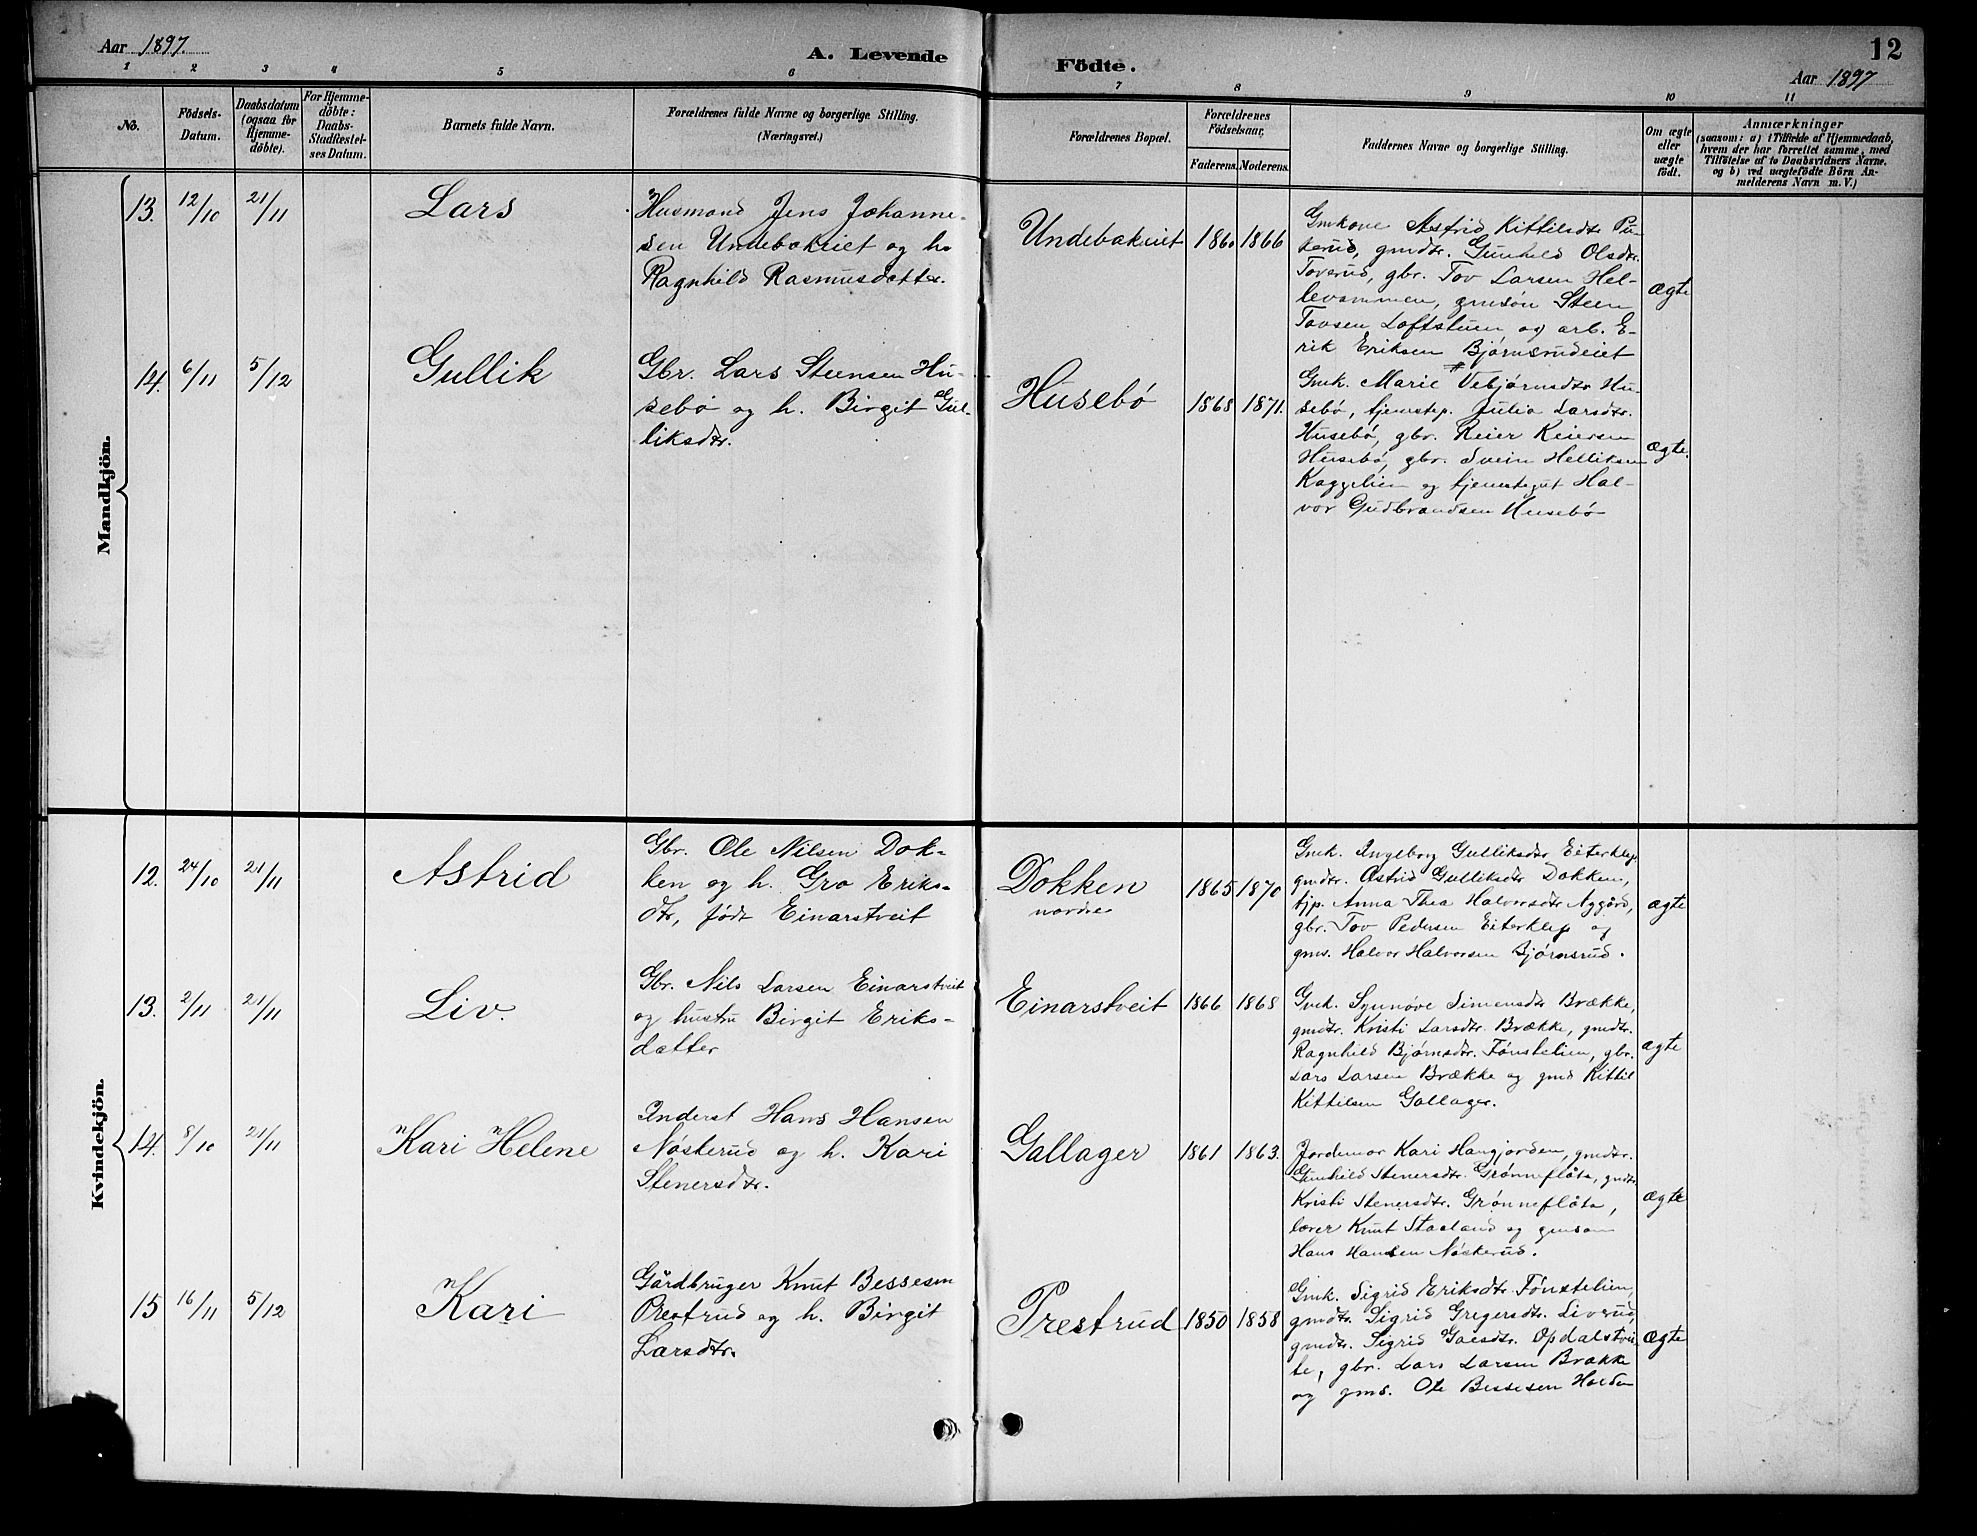 Aar 1897.
A. Levende
Födte.
12
Aar 1897
1 2 3 4 5 6 7 8 9 10 11
No.
Födsels-
Datum.
Daabsdatum
(ogsaa for
Hjemme-
döbte).
For Hjemme-
döbte:
Daabs-
Stadfæstel-
ses Datum.
Barnets fulde Navn.
Forældrenes fulde Navne og borgerlige Stilling.
(Næringsvei.)
Forældrenes Bopæl.
Forældrenes
Födselsaar.
Faderens. Moderens.
Faddernes Navne og borgerlige Stilling.
Om ægte
eller
uægte
født.
Anmærkninger
(saasom: a) i Tilfælde af Hjemmedaab,
hvem der har forrettet samme, med
Tilføielse af to Daabsvidners Navne.
og b) ved uægtefödte Börn An-
melderens Navn m. V.)
Mandkjön.
13. 12/10 21/11 Lars
Husmand Jens Johanne-
sen Undebakeiet og h.
Ragnhild Rasmusdatter.
Undebakeiet 1860 1866
Gmkone Astrid Kittilsdtr Pu-
terud, gmdtr. Gunhild Olsdtr.
Toverud, gbr. Tov Larsen Hel-
levammen, gmsøn Steen
Tovsen Loftstuen og arb. E-
rik Eriksen Bjørnsrudeiet
ægte
14. 6/11 5/12 Gullik
Gbr. Lars Steensen Hu-
sebø og h. Birgit Gul-
liksdtr.
Husebø 1868 1871.
Gmk. Marie Vebjørnsdtr Hu-
sebø, tjenstep. Julia Larsdtr.
Husebø, gbr. Reier Reiersen
Husebø, gbr. Svein Helliksen
Kaggelien og tjenstegut Hal-
vor Gudbrandsen Husebø
ægte.
Kvindekjön.
12. 24/10 21/11 Astrid
Gbr. Ole Nilsen Dok-
ken og h. Gro Eriks-
dtr, født Einarstveit
Dokken
nordre
1865 1870
Gmk. Ingeborg Gulliksdtr Eiterklep
gmdtr. Astrid Gulliksdtr Dokken,
tjp. Anna Thea Halvorsdtr Nygård,
gbr. Tov Pedersen Eiterklep og
gms. Halvor Halvorsen Bjørnsrud.
ægte
13. 2/11 21/11 Liv.
Gbr. Nils Larsen Einarstveit
og hustru Birgit Eriks-
datter
Einarstveit 1866 1868
Gmk. Synnøve Simensdtr Brække,
gmdtr. Kristi Larsdtr. Brække, gmdtr.
Ragnhild Bjørnsdtr. Fønstelien, gbr.
Lars Larsen Brække og gmd Kittil
Kittilsen Gallager.
ægte
14. 8/10 21/11 Kari Helene
Inderst Hans Hansen
Nøsterud og h. Kari
Stenersdtr.
Gallager 1861 1863.
Jordemor Kari Hangjorden, gmdtr.
Gunhild Stenersdtr. Grønneflåta, gmdtr.
Kristi Stenersdtr. Grønneflåta,
lærer Knut Staaland og gmsøn
Hans Hansen Nøsterud.
ægte
15 16/11 5/12 Kari
Gårdbruger Knut Bessesen
Prestrud og h. Birgit
Larsdtr.
Prestrud 1850 1858
Gmk. Sigrid Eriksdtr. Fønstelien,
gmdtr. Sigrid Gregersdtr. Liverud,
gmdtr. Sigrid Goesdtr. Opdalstvei-
te, gbr. Lars Larsen Brække
og gms. Ole Bessesen
ægte